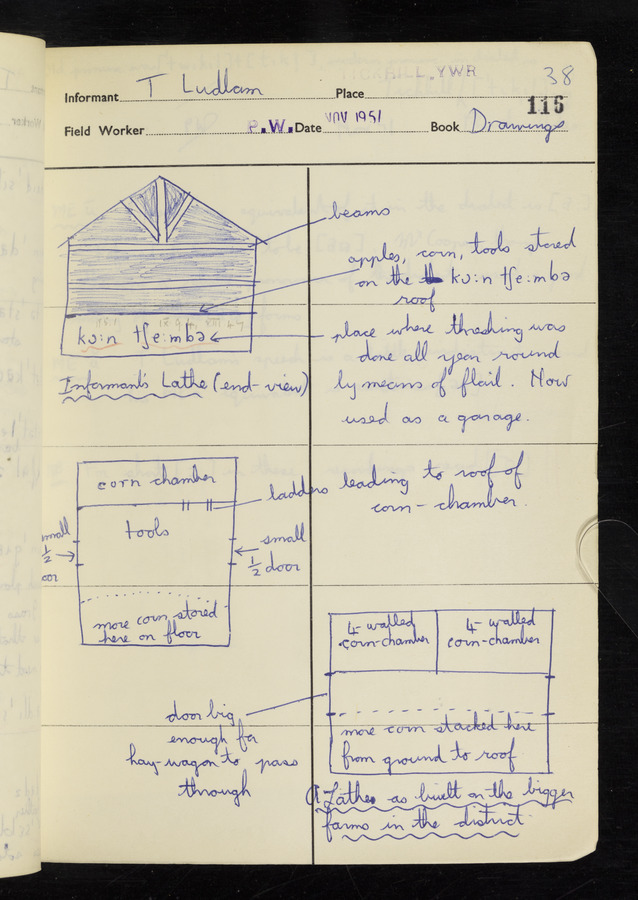 38
Informant T Ludlam Place TICKHILL. YWR
115
Field Worker P.W. Date NOV 1951 Book Drawings
beams
apples, corn, tools stored
on the kɔ:n tʃe:mbə
roof
kɔ:n tʃe:mbə
place where threshing was
done all year round
by means of flail. Now
used as a garage.
Informant's Lathe (end-view)
corn chamber
ladders leading to roof of
corn-chamber.
tools
small
1/2 door
small
1/2
oor
more corn stored
here on floor
4-walled
corn-chamber
4-walled
corn-chamber
door big
enough for
hay-wagon to pass
through
more corn stacked here
from ground to roof
A Lathe as built on the bigger
farms in the district.